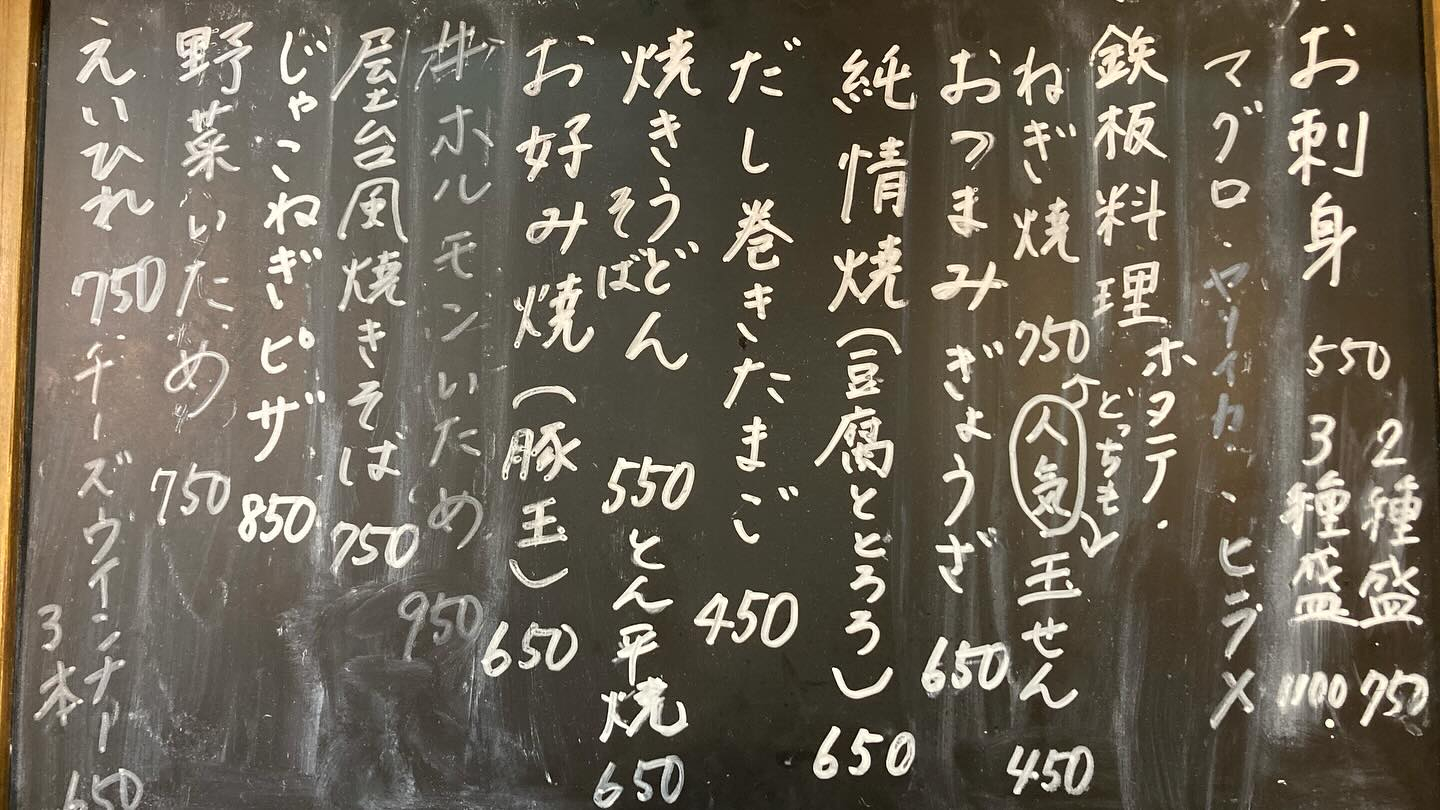 お刺身 550
2種盛 750
3種盛 1100
マグロ、ヤリイカ、ヒラメ
ホタテ、
鉄板料理
どっちも
ねぎ焼 750 人気 玉せん 450
おつまみぎょうざ 650
純情焼(豆腐ととろろ) 650
だし巻きたまご 450
焼きうどん 550 とん平焼 650
そば
お好み焼(豚玉) 650
丼ホルモンいため 950
屋台風焼きそば 750
じゃこねぎピザ 850
野菜いため 750
えいひれ 750 チーズウインナー 650
3本